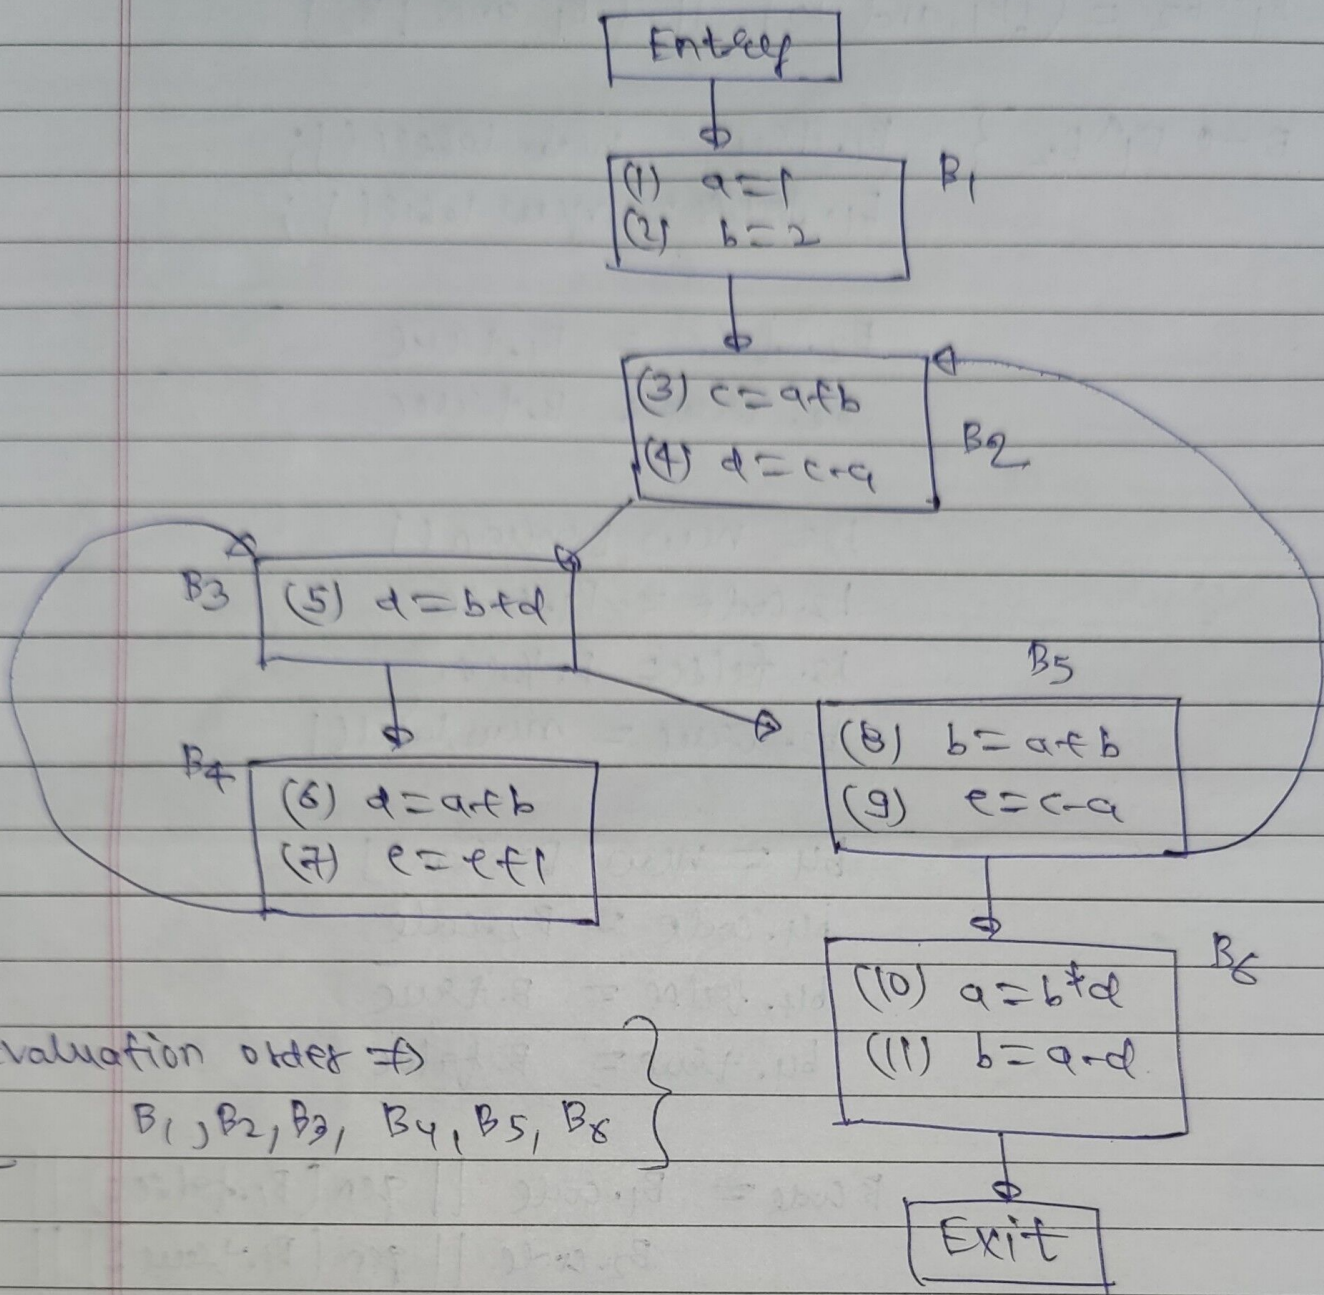 Entry
B1
(1) a=1
(2) b=2
(3) c=a+b
(4) d=c-a
B2
B3
(5) d=b+d
B5
B4
(6) d=a+b
(7) e=e+1
(8) b=a+b
(9) e=c-a
B6
(10) a=b*d
(11) b=a-d
valuation order =>
B1, B2, B3, B4, B5, B6
Exit